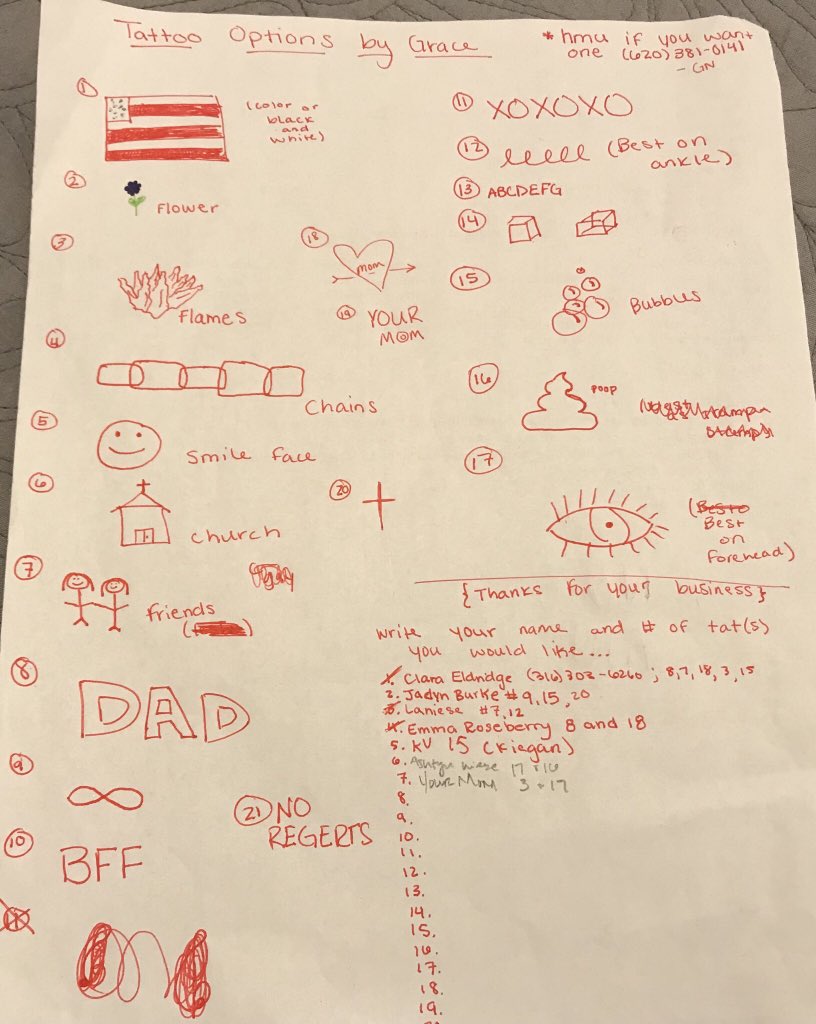 Tattoo Options by Grace
* hmu if you want
one (620) 381-0141
- GN
1
(color or
black
and
white)
2
Flower
3
Flames
4
Chains
5
smile face
6
church
7
friends
8
DAD
9
10
BFF
18
mom
19
YOUR
MOM
20
21 NO
REGERTS
11 XOXOXO
12 (Best on
ankle)
13 ABCDEFG
14
15
Bubbles
16
poop
17
(Best
on
forehead)
{Thanks for your business}
write your name and # of tat(s)
you would like...
1. Clara Eldridge (316) 303-6260; 8,7,18,3,15
2. Jadyn Burke #9,15,20
3. Laniese #7,12
4. Emma Roseberry 8 and 18
5. KV 15 (Kiegan)
6. 17 + 16
7. Your Mom 3 + 17
8.
9.
10.
11.
12.
13.
14.
15.
16.
17.
18.
19.